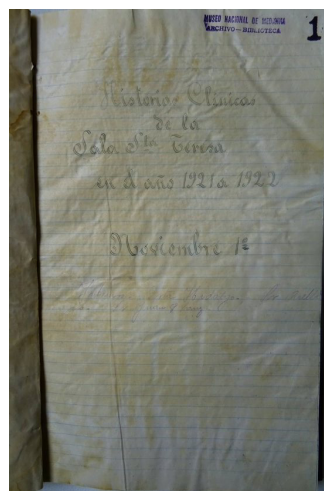 MUSEO NACIONAL DE MEDICINA
ARCHIVO - BIBLIOTECA
1
Historias Clínicas
de la
Sala Sta Teresa
en el año 1921 a 1922
Noviembre 1º